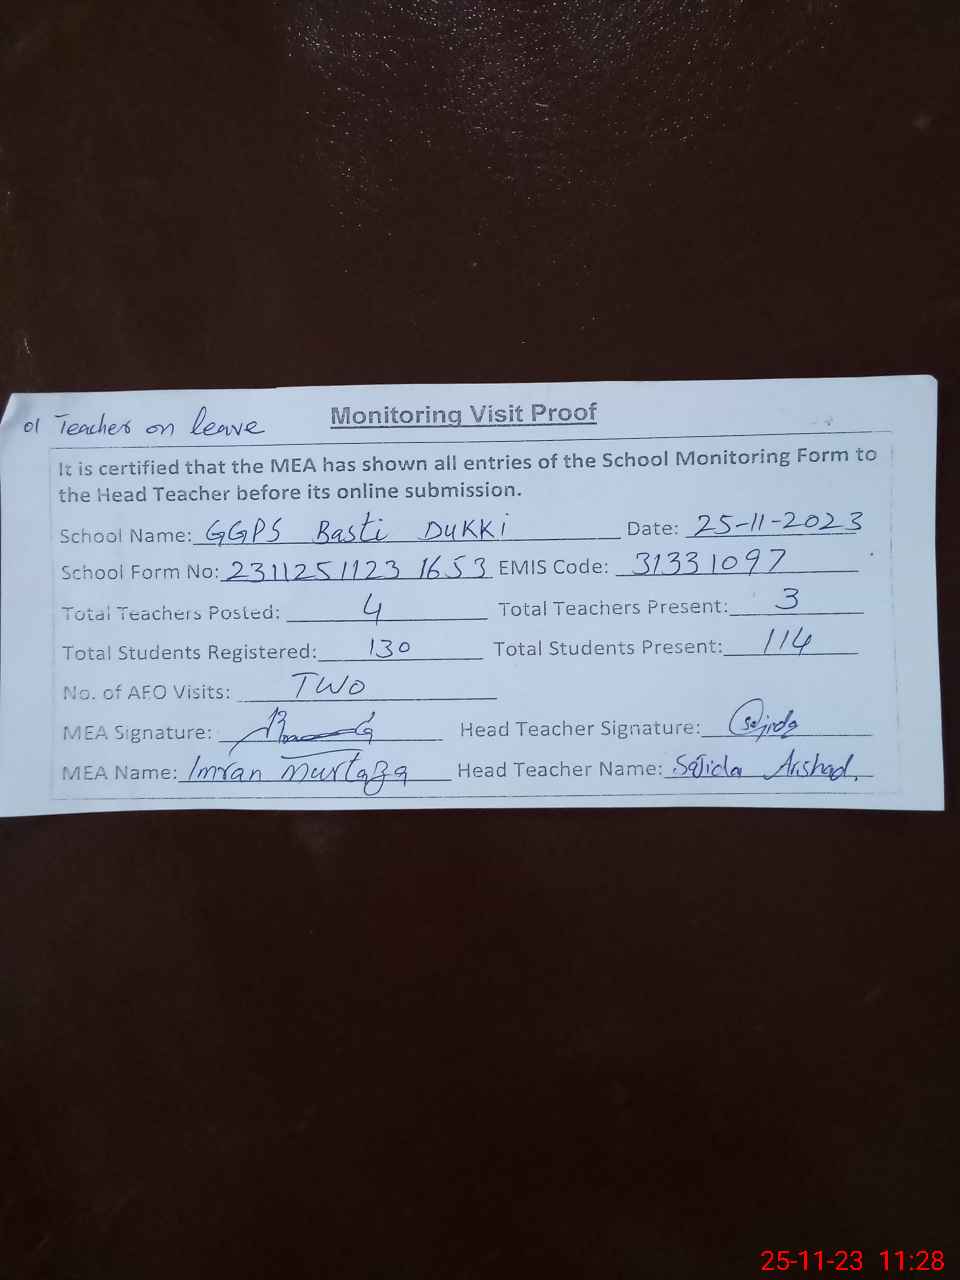 Monitoring Visit Proof
01 Teacher on leave
It is certified that the MEA has shown all entries of the School Monitoring Form to
the Head Teacher before its online submission.
School Name: GGPS Basti Dukki Date: 25-11-2023
School Form No: 2311251123 1653 EMIS Code: 31331097
Total Teachers Posted: 4 Total Teachers Present: 3
Total Students Registered: 130 Total Students Present: 114
No. of AEO Visits: TWO
MEA Signature: Head Teacher Signature: Sajida
MEA Name: Imran Murtaza Head Teacher Name: Sajida Arshad.
25-11-23 11:28